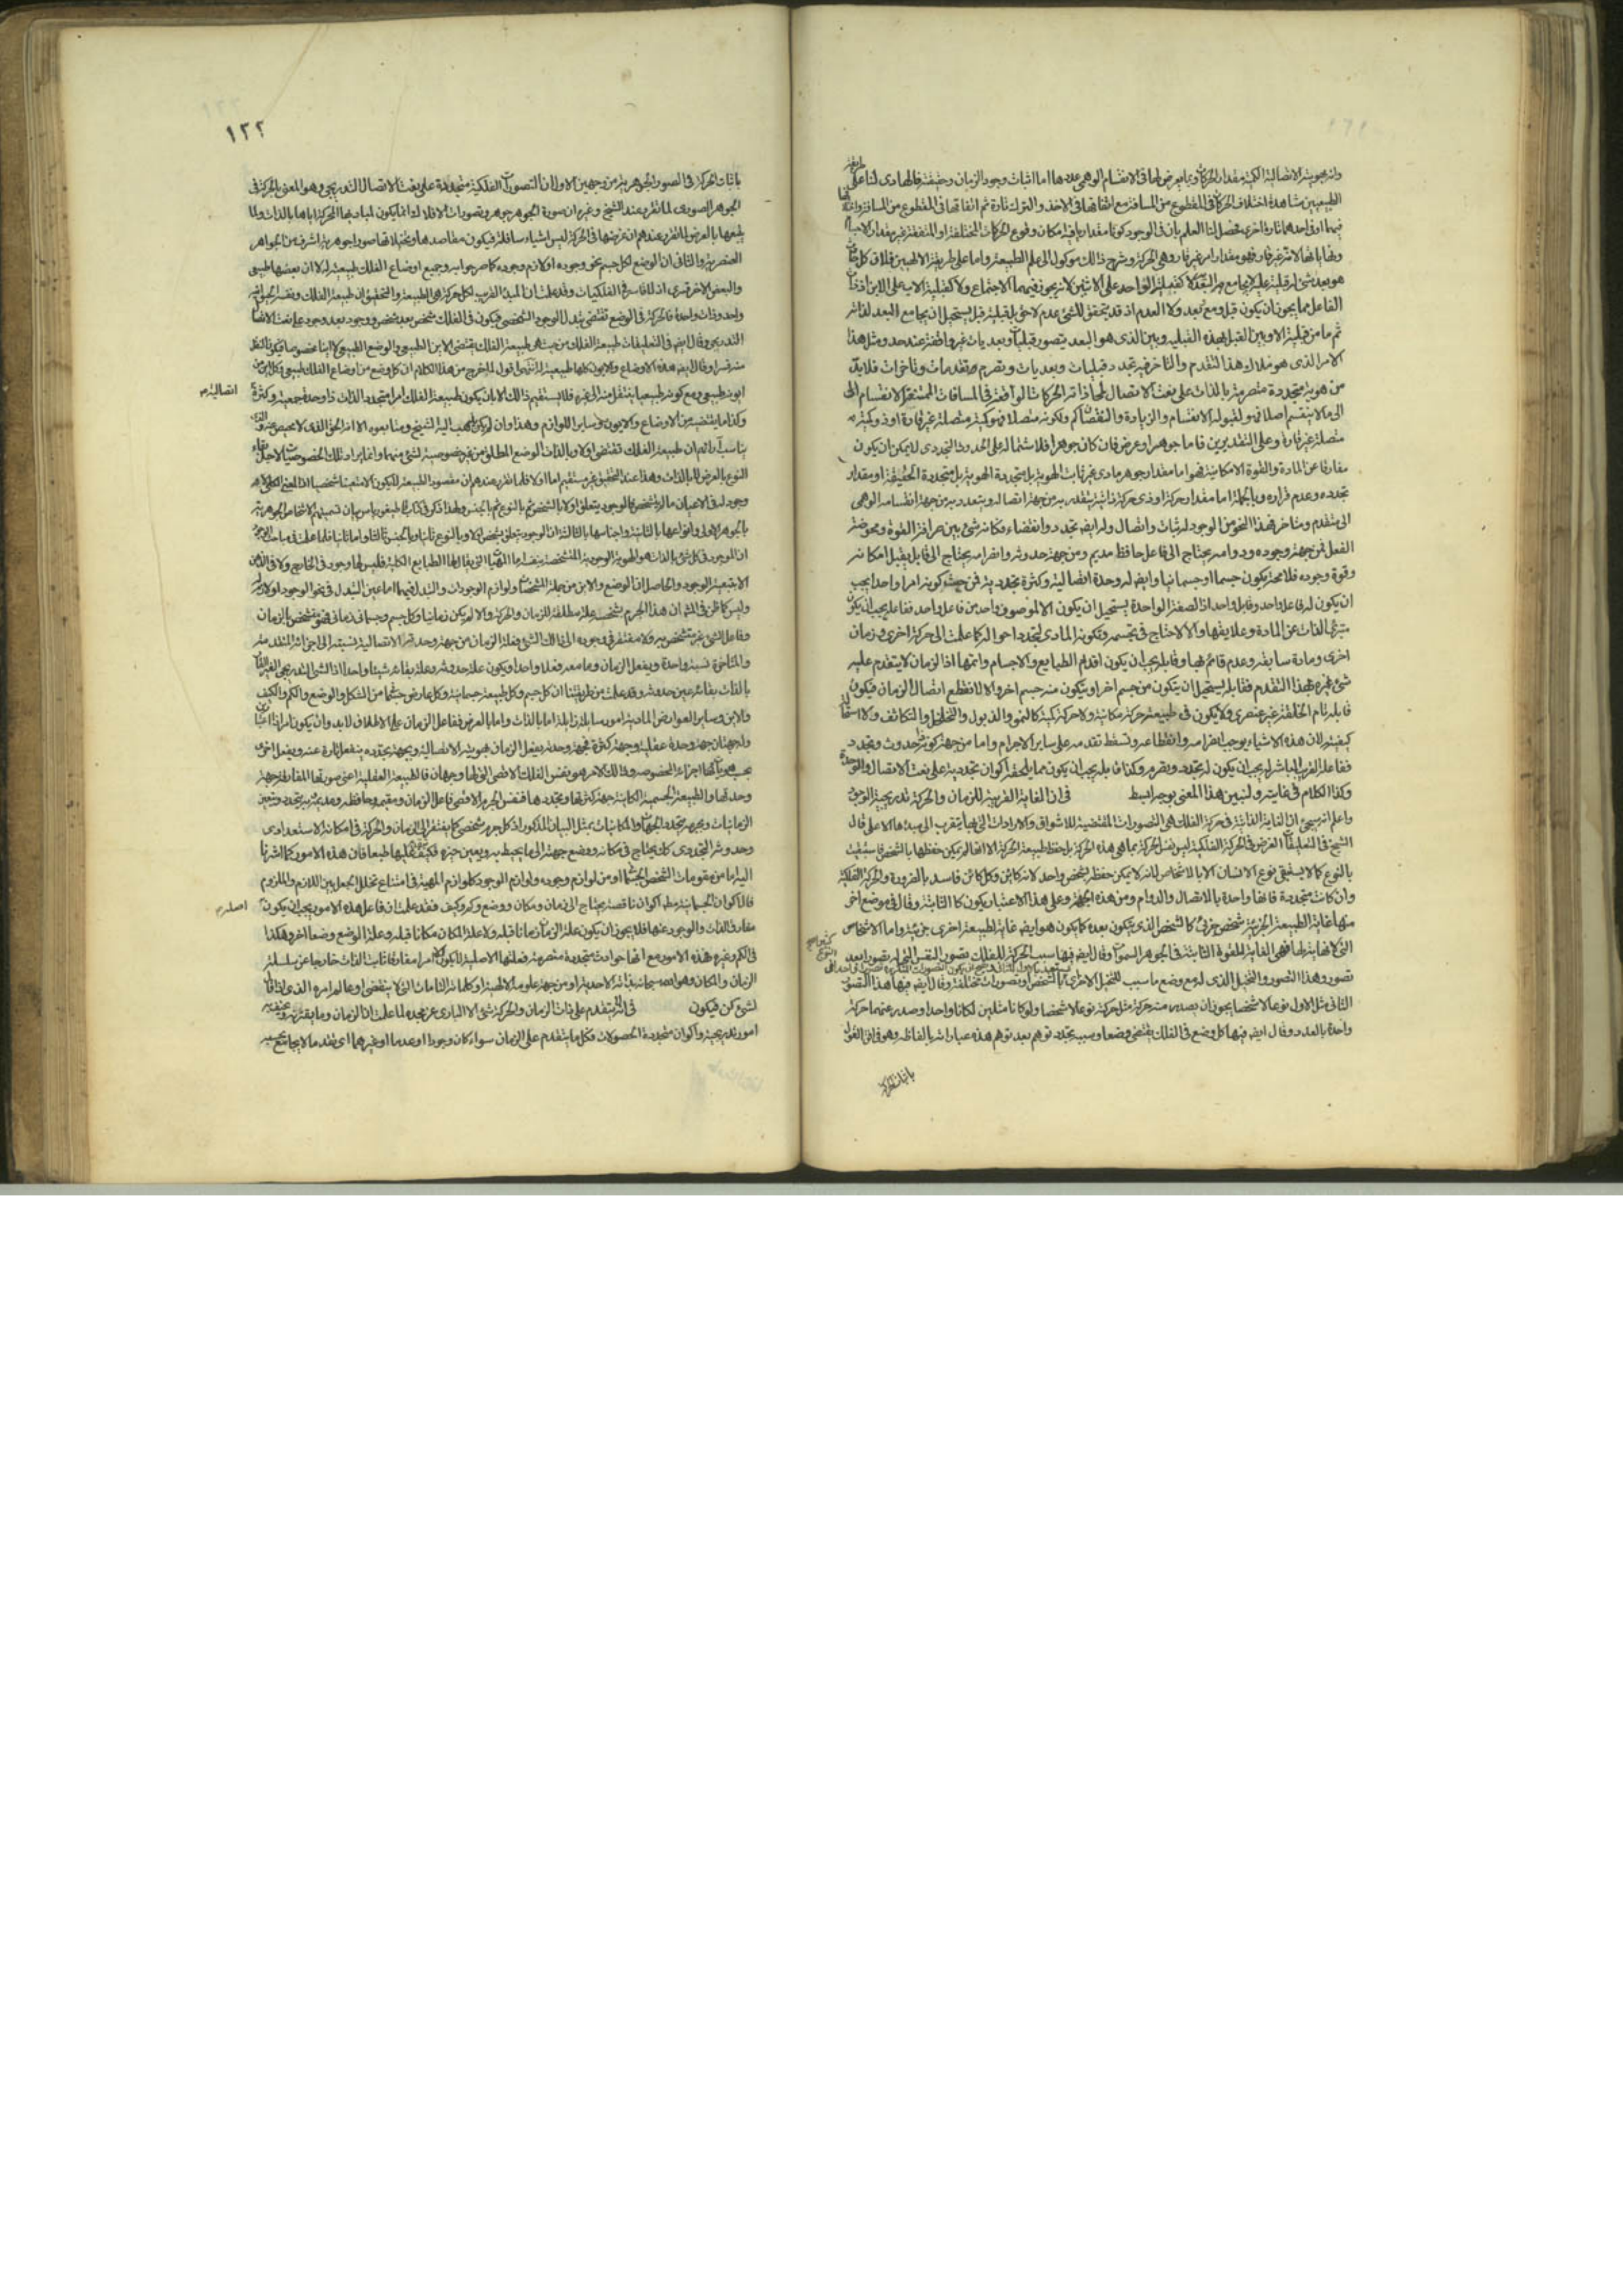 وانه بهويته الاتصالية الكمية مقدار الحركات وبما يعرض لها فى الانقسام الوهمى عددها اما اثبات وجود الزمان وحقيقته فالهادى لنا على طريقة
الطبيعيين مشاهدة اختلاف الحركات فى المقطوع من المسافة مع اتفاقها فى الاخذ والترك تارة ثم اتفاقها فى المقطوع من المسافة واختلافها
فيهما او فى احدهما تارة اخرى فحصل لنا العلم بان فى الوجود كونا مقداريا فيه امكان وقوع الحركات المختلفة او المتفقة غير مقدار الاجسام
ونهاياتها لانه غير قار فهو مقدار لامر غير قار وهى الحركة وشرح ذلك موكول الى علم الطبيعة واما على طريقة الالهيين فلان كل حادث
هو بعد شىء له قبلية عليه لا يجامع به البعد لا كقبلية الواحد على الاثنين لانه يجوز فيهما الاجتماع ولا كقبلية الاب على الابن او ذات
الفاعل مما يجوز ان يكون قبل ومع وبعد ولا العدم اذ قد يتحقق للشىء عدم لاحق بل قبلية قبل يستحيل ان يجامع البعد لذاته
ثم ما من قبلية الا وبين القبل بهذه القبلية وبين الذى هو البعد يتصور قبليات وبعديات غير واقفة عند حد ومثل هذا
الامر الذى هو ملاك هذا التقدم والتاخر فيه تجدد قبليات وبعديات وتصرم تقدمات وتأخرات فلابد
من هوية متجددة متصرمة بالذات على نعت الاتصال لمحاذاته الحركات الواقعة فى المسافات الممتنعة الانقسام الى
الى ما لا ينقسم اصلا فهو لقبوله الانقسام والزيادة والنقصان كم ولكونه متصلا فهو كمية متصلة غير قارة او ذو كمية
متصلة غير قارة وعلى التقديرين فاما جوهر او عرض فان كان جوهرا فلاشتماله على الحدوث التجددى لا يمكن ان يكون
مفارقا عن المادة والقوة الامكانية فهو اما مقدار جوهر مادى غير ثابت الهوية بل متجددة الهوية بل متجددة الحقيقة او مقدار
تجدده وعدم قراره وبالجملة اما مقدار حركة او ذى حركة ذاتية يتقدر به من جهة اتصاله ويتعدد به من جهة انقسامه الوهمى
الى متقدم ومتاخر فهذا النحو من الوجود له ثبات واتصال وله ايضا تجدد وانقضاء فكانه شىء بين صرافة القوة ومحوضة
الفعل فمن جهة وجوده ودوامه يحتاج الى فاعل حافظ مديم ومن جهة حدوثه وانصرامه يحتاج الى قابل يقبل امكانه
وقوة وجوده فلا محة يكون جسما او جسمانيا وايضا له وحدة اتصالية وكثرة تجددية فمن حيث كونه امرا واحدا يجب
ان يكون له فاعل واحد وقابل واحد اذ الصفة الواحدة يستحيل ان يكون الا لموصوف واحد من فاعل واحد ففاعله يجب ان يكون
متبرئ الذات عن المادة وعلايقها والا لاحتاج فى تجسمه وتكونه المادى لتجدد احواله كما علمت الى حركة اخرى وزمان
اخرى ومادة سابقة وعدم قائم بها وقابله يجب ان يكون اقدم الطبايع والاجسام واتمها اذ الزمان لا يتقدم عليه
شىء غيره هذا التقدم فقابله يستحيل ان يتكون من جسم اخر او يتكون منه جسم اخر والا لانقطع اتصال الزمان فيكون
قابله تام الخلقة غير عنصرى ولا يكون فى طبيعته حركة مكانية ولا حركة كمية كالنمو والذبول والتخلخل والتكاثف ولا استحالة
كيفية لان هذه الاشياء يوجب انصرامه وانقطاعه وتسقط تقدمه على ساير الاجرام واما من جهة كونه ذا حدوث وتجدد
ففاعله القريب المباشر له يجب ان يكون له تجدد وتصرم وكذا قابله يجب ان يكون مما يلحقه اكوان تجددية على نعت الاتصال والوحدة
وكذا الكلام فى غايته ولنبين هذا المعنى بوجه ابسط فى ان الغاية القريبة للزمان والحركة تدريجية الوجود
واعلم انه سيجئ ان الغاية الذاتية فى حركة الفلك هى التصورات المقتضية للاشواق والارادات التى بها يتقرب الى مبدئها الاعلى قال
الشيخ فى التعليقات الغرض فى الحركة الفلكية ليس نفس الحركة بما هى هذه الحركة بل حفظ طبيعة الحركة الا انها لم يمكن حفظها بالشخص فاستبقيت
بالنوع كما لا يستبقى نوع الانسان الا بالاشخاص لانه لا يمكن حفظه بشخص واحد لانه كائن وكل كائن فاسد بالضرورة والحركة الفلكية
وان كانت متجددة فانها واحدة بالاتصال والدوام ومن هذه الجهة وعلى هذا الاعتبار يكون كالثابتة وقال فى موضع اخر
منها غاية الطبيعة الجزئية شخص جزئى كالشخص الذى يتكون بعده كما يكون هو ايضا غاية لطبيعة اخرى جزئية واما الاشخاص
التى لا نهاية لها فهى الغاية للقوة الثابتة فى الجوهر السموات وقال ايضا فيها سبب الحركة للفلك تصور النفس التى له تصورا بعد
تصور وهذا التصور والتخيل الذى له مع وضع ما سبب للتخيل الاخر
الثانى مثل الاول نوعا لا شخصا يجوز ان يصدر منه حركة مثل حركة نوعا لا شخصا ولو كانا مثلين لكانا واحدا وصدر عنهما حركة
واحدة بالعدد وقال ايضا فيها كل وضع فى الفلك يقتضى وضعا وسببه تجدد توهم بعد توهم هذه عباراته بالفاظه وهو فى قوة القول
باثبات الحركة
١٢٢
باثبات الحركة فى الصورة الجوهرية من وجهين الاول ان التصورات الفلكية متجددة على نعت الاتصال التدريجى وهو المعنى بالحركة فى
الجوهر الصورى لما تقرر عند الشيخ وغيره ان صورة الجوهر جوهر وتصورات الافلاك انما يكون لمباديها الحركة اياها بالذات ولما
يتبعها بالعرض لما تقرر عندهم ان غرضها فى الحركة ليس اشياء سافلة فيكون مقاصدها ومتخيلاتها صورا جوهرية اشرف من الجواهر
العنصرية والثانى ان الوضع لكل جسم نحو وجوده او لازم وجوده كما صرحوا به وجميع اوضاع الفلك طبيعية له لا ان بعضها طبيعى
والبعض الاخر قسرى اذ لا قاسر فى الفلكيات وقد علمت ان المبدأ القريب لكل حركة هى الطبيعة والتحقيق ان طبيعة الفلك ونفسه الحيوانية شىء
واحد وذات واحدة فالحركة فى الوضع تقتضى تبدل الوجود الشخصى فيكون فى الفلك شخص بعد شخص ووجود بعد وجود على نعت الاتصال
التدريجى وقال ايضا فى التعليقات طبيعة الفلك من حيث هى طبيعة الفلك يقتضى الاين الطبيعى والوضع الطبيعى لا اينا مخصوصا فيكون النقل
منه قسرا وقال ايضا هذه الاوضاع والايون كلها طبيعية له انتهى اقول لا مخرج من هذا الكلام ان كل وضع من اوضاع الفلك طبيعى وكل اين من
ايونه طبيعى ومع كونه طبيعيا ينتقل منه الى غيره فلا يستقيم ذلك الا بان يكون طبيعة الفلك امرا متجدد الذات ذا وحدة جمعية وكثرة
اتصالية
وكذا ما يقتضيه من الاوضاع والايون وساير اللوازم وهذا وان لم يكن مذهب اليه الشيخ ومتابعوه الا انه الحق الذى لا محيص عنه
يناسب رائهم ان طبيعة الفلك تقتضى اولا وبالذات الوضع المطلق من غير خصوصية لشىء منهما وانما يراد تلك الخصوصيات لاجل بقاء
النوع بالعرض لا بالذات وهذا عند التحقيق غير مستقيم اما اولا فلما تقرر عندهم ان مقصود الطبيعة لا يكون الا متعينا شخصيا اذ المعنى الكلى لا
وجود له فى الاعيان ما لم يتشخص فالوجود يتعلق اولا بالشخص ثم بالنوع ثم بالجنس
بالجوهر الاولى وانواعها بالثانية واجناسها بالثالثة ان الوجود يتعلق بشخص اولا وبالنوع ثانيا وبالجنس ثالثا واما ثانيا فلما علمت فى مباحث الوجود
ان الموجود فى كل شىء بالذات هو الهوية الوجودية المتشخصة بنفسها اما المهيات التى يقال لها الطبايع الكلية فليس لها وجود فى الخارج ولا فى الذهن
الا بتبعية الوجود والحاصل ان الوضع والاين من جملة المشخصات ولوازم الوجودات والتبدل فيهما اما عين التبدل فى نحو الوجود او لازم له
وليس كما ظن فى المشهور ان هذا الجرم شخصه علة مطلقة للزمان والحركة والا لم يكن زمانيا وكل جسم وجسمانى زمانى فهو متشخص بالزمان
وفاعل الشىء غير متشخص به ولا مفتقر فى وجوده الى ذلك الشىء فعلة الزمان من جهة وحدته الاتصالية نسبته الى اجزائه المتقدمة
والمتاخرة نسبة واحدة ويفعل الزمان وما معه فعلا واحدا ويكون علة حدوثه وعلة بقائه شيئا واحدا اذ الشىء التدريجى الغير القار
بالذات بقائه عين حدوثه وقد علمت من طريقتنا ان كل جسم وكل طبيعة جسمانية وكل عارض جسمانى من الشكل والوضع والكم والكيف
والاين وساير العوارض المادية امور سايلة زايلة اما بالذات واما بالعرض ففاعل الزمان على الاطلاق لابد وان يكون امرا ذا اعتبارين
وله جهتان جهة وحدة عقلية وجهة كثرة تجددية فبجهة وحدته يفعل الزمان بهويته الاتصالية وبجهة تجدده ينفعل تارة عنه ويفعل اخرى
بحسب هويات اجزائه المخصوصة وذلك الامر هو نفس الفلك الاقصى التى لها وجهان فالطبيعة العقلية اعنى صورتها المفارقة جهة
وحدتها والطبيعة الجسمية الكائنة جهة كثرتها وتجددها فنفس الجرم الاقصى فاعل الزمان ومقيمه وحافظه ومديمه يتجدد ويتعين
الزمانيات وبجرمه يتحدد الجهات والمكانيات بمثل البيان المذكور اذ كل جرم شخصى كما يفتقر الى الزمان والحركة فى امكانه الاستعدادى
وحدوثه التجددى كان يحتاج فى مكانه ووضع جهته الى ما يحيط به ويعين حيزه فكيف يتقدم عليها طبعا فان هذه الامور كما اشرنا
اليه اما من مقومات الشخص الجسمانى او من لوازم وجوده ولوازم الوجود كلوازم المهية فى امتناع تخلل الجعل بين اللازم والملزوم
فالاكوان الجسمانية مطلقا اكوان ناقصة يحتاج الى زمان ومكان ووضع وكم وكيف فقد علمت ان فاعل هذه الامور يجب ان يكون
اصله
مفارق الذات والوجود عنها فلا يجوز ان يكون علة الزمان زمانا قبله ولا علة المكان مكانا قبله وعلة الوضع وضعا اخر وهكذا
فى الكم وغيره فهذه الامور مع انها حوادث متجددة متصرمة فعلتها الاصلية لا يكون الا امرا مفارقا ثابت الذات خارجا عن سلسلة
الزمان والمكان وهو الله سبحانه بذاته الاحدية او من جهة علومه الالهية او كلماته التامات التى لا ينقضى او عالم امره الذى اذا قال
لشىء كن فيكون فى انه لا يتقدم على ذات الزمان والحركة شىء الا البارى عز مجده لما علمت ان الزمان وما يقترنه
امور تدريجية واكوان متجددة الحصولات فكل ما يتقدم على الزمان سواء كان وجودا او عدما او غيرهما اى تقدما لا يجامع بحسبه